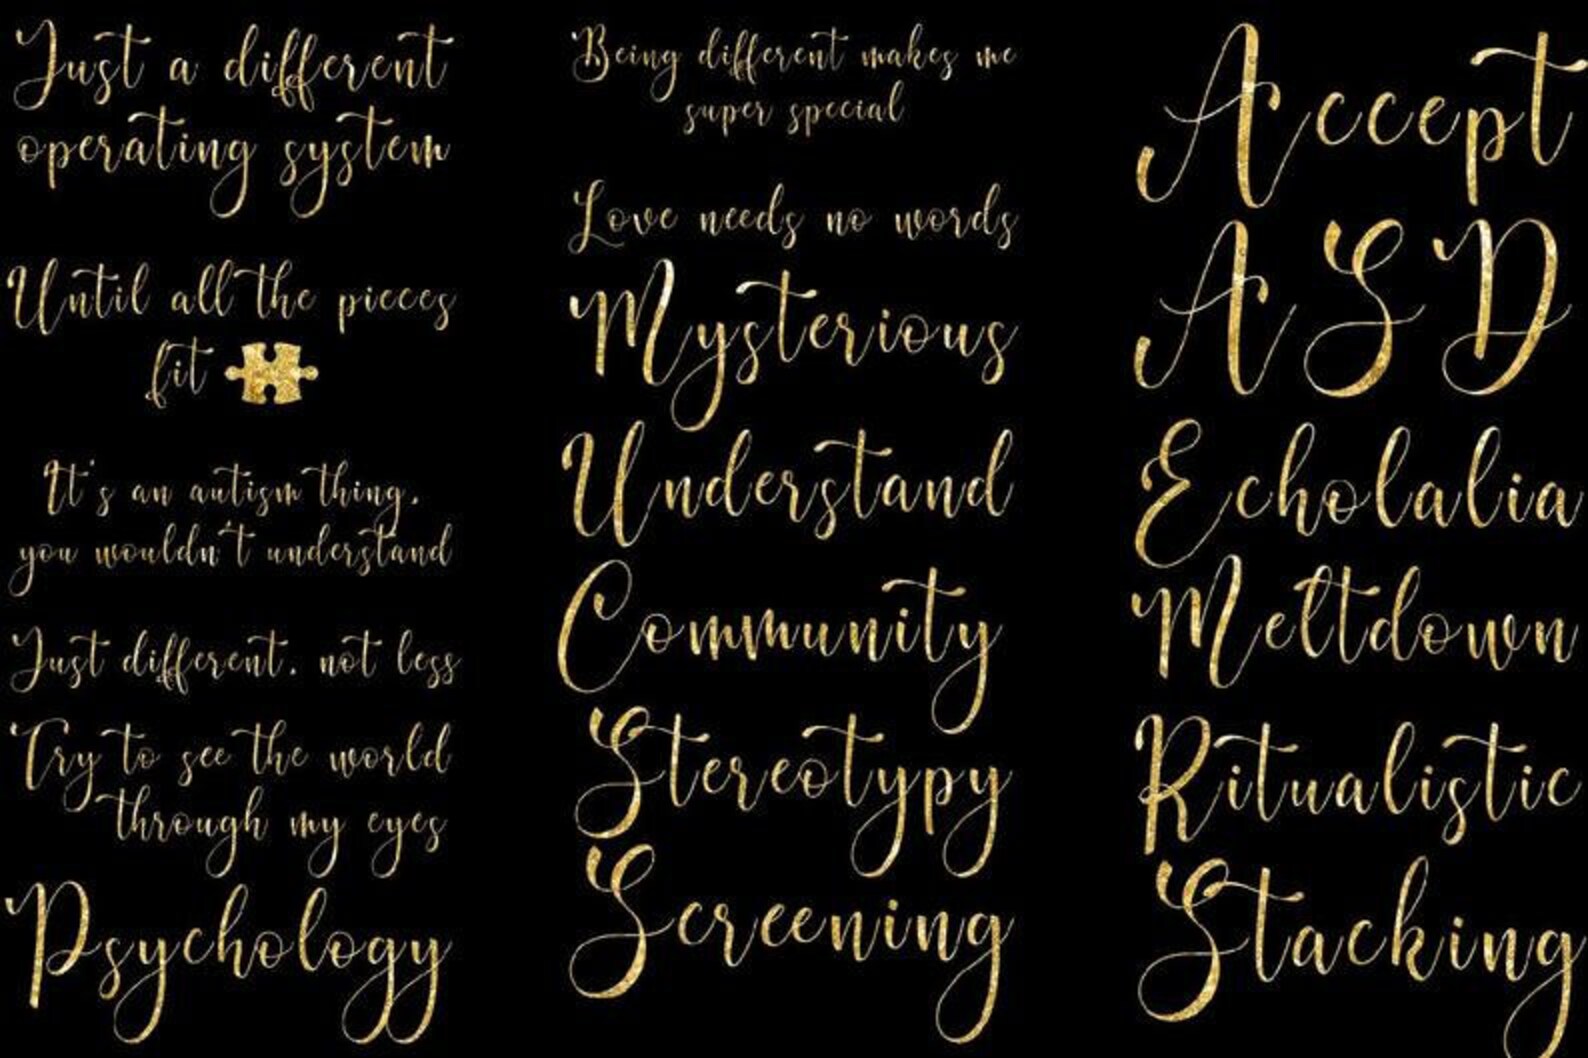 Just a different
operating system
Until all the pieces
fit
It's an autism thing,
you wouldn't understand
Just different, not less
Try to see the world
through my eyes
Psychology
Being different makes me
super special
Love needs no words
Mysterious
Understand
Community
Stereotypy
Screening
Accept
ASD
Echolalia
Meltdown
Ritualistic
Stacking